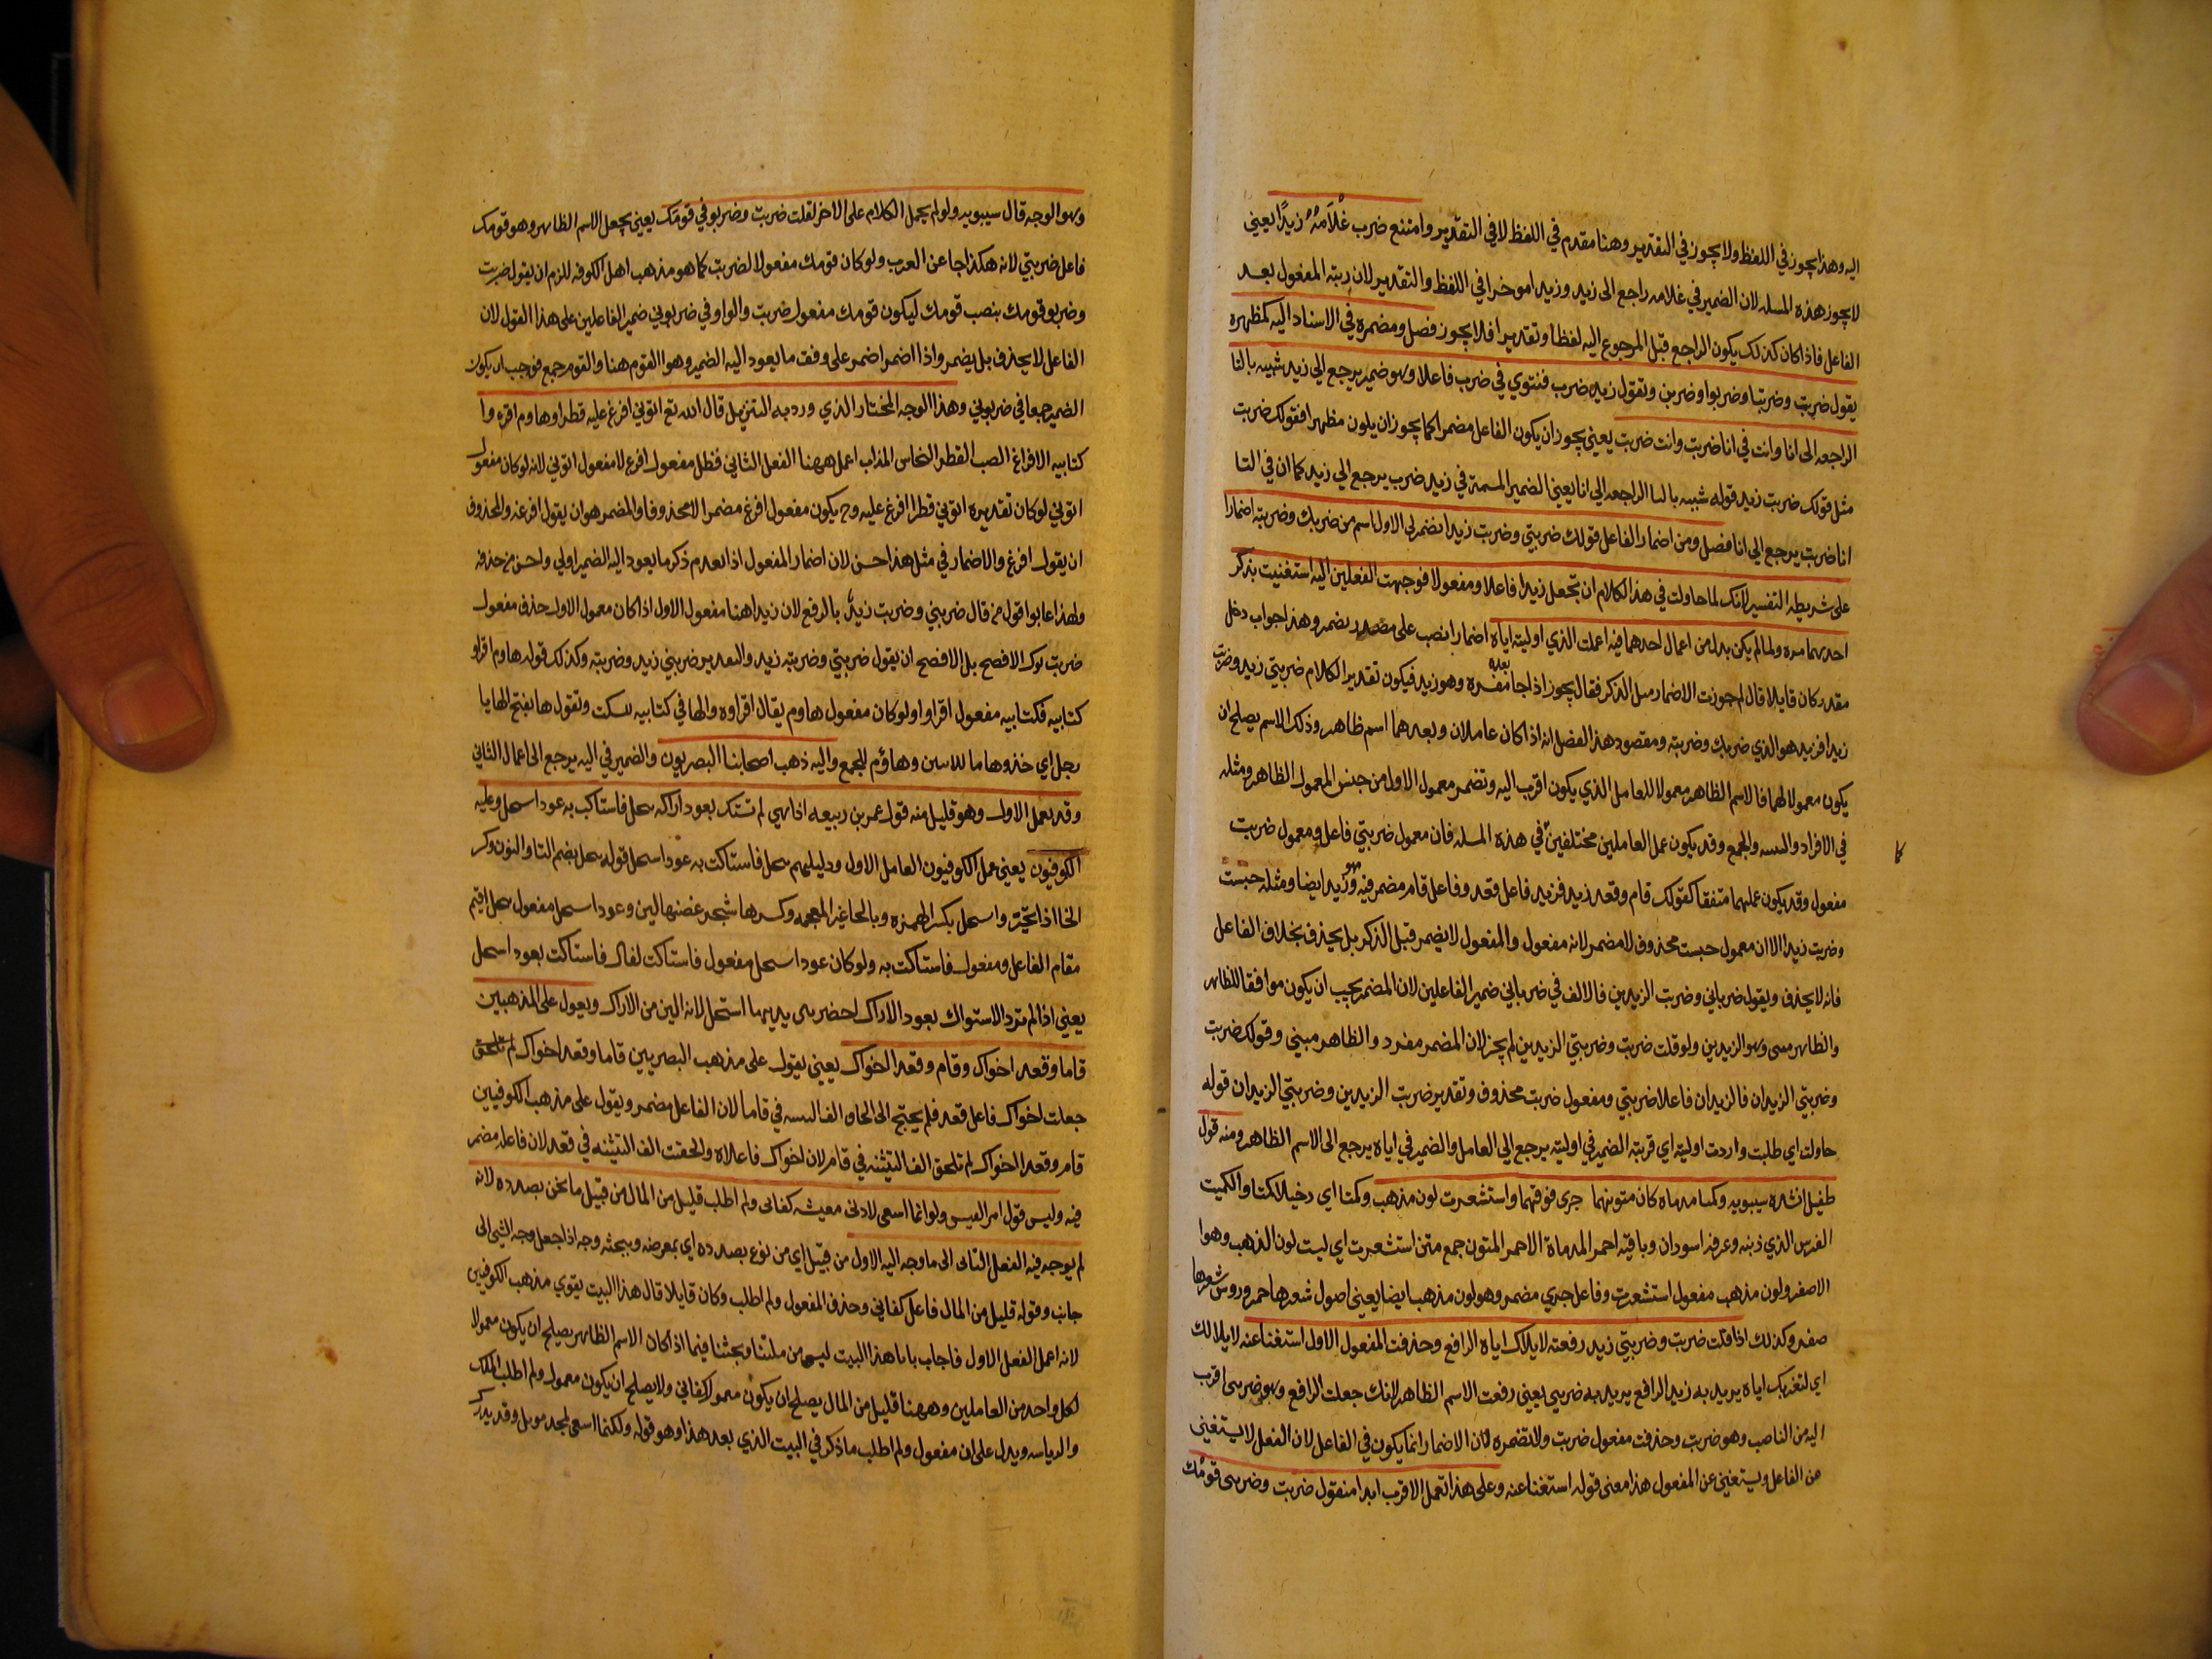 اليه وهذا يجوز في اللفظ ولا يجوز في التقدير وهنا مقدم في اللفظ لا في التقدير وامتنع ضرب غُلَامُهُ زيدًا يعني
لا يجوز هذه المسله لان الضمير في غلامه راجع الى زيد وزيدا موخرا في اللفظ والتقدير لان رتبته المفعول بعد
الفاعل فاذا كان كذلك يكون الراجع قبل المرجوع اليه لفظا وتقديرا فلا يجوز فصل ومضمره في الاسناد اليه كمظهره
يقول ضربت وضربنا وضربوا وضربن وتقول زيد ضرب فتنوي في ضرب فاعلا وهو ضمير يرجع الى زيد شبيه بالتا
الراجعه الى انا وانت في انا ضربت وانت ضربت يعني يجوز ان يكون الفاعل مضمرا كما يجوز ان يكون مظهرا فقولك ضربت
مثل قولك ضربت زيد قوله شبيه بالتا الراجعه الى انا يعني الضمير المستتر في زيد ضرب يرجع الى زيد كما ان في التا
انا ضربت يرجع الى انا فصل ومن اضمار الفاعل قولك ضربني وضربت زيدا تضمر في الاول اسم من ضربك وضربته اضمارا
على شريطه التفسير لانك لما حاولت في هذا الكلام ان تجعل زيدا فاعلا ومفعولا فوجهت الفعلين اليه استغنيت بذكر
احدهما مره ولما لم يكن بد من اعمال احدهما فيه اعملت الذي اوليته اياه اضمارا نصب على مصدر يضمر وهذا جواب دخل
مقدر كان قايلا قال لم جوزت الاضمار قبل الذكر فقال يجوز اذا جا بعده مفسره وهو زيد فيكون تقدير الكلام ضربني زيد وضربت
زيدا فزيد هو الذي ضربك وضربته ومقصود هذا الفصل انه اذا كان عاملان وبعدهما اسم ظاهر وذلك الاسم يصلح ان
يكون معمولا لهما فالاسم الظاهر معمولا للعامل الذي يكون اقرب اليه وتضمر معمول الاول من جنس المعمول الظاهر ومثله
في الافراد والتثنيه والجمع وقد يكون عمل العاملين مختلفين كما في هذه المسله فان معمول ضربني فاعل ومعمول ضربت
مفعول وقد يكون عملهما متفقا كقولك قام وقعد زيد فزيد فاعل قعد وفاعل قام مضمر فيه وهو زيد ايضا ومثله حبست
وضربت زيدا الا ان معمول حبست محذوف لا مضمر لانه مفعول والمفعول لا يضمر قبل الذكر بل يحذف بخلاف الفاعل
فانه لا يحذف ويقول ضرباني وضربت الزيدين فالالف في ضرباني ضمير الفاعلين لان المضمر يجب ان يكون موافقا للظاهر
والظاهر مثنى وهو الزيدين ولو قلت ضربت وضربني الزيدين لم يجز لان المضمر مفرد والظاهر مبني وقولك ضربت
وضربني الزيدان فالزيدان فاعلا ضربني ومفعول ضربت محذوف وتقدير ضربت الزيدين وضربني الزيدان قوله
حاولت اي طلبت واردت اوليته اي قربته الضمير في اوليته يرجع الى العامل والضمير في اياه يرجع الى الاسم الظاهر ومنه قول
طفيل انشده سيبويه وكمتا مدماه كان متونها جرى فوقها واستشعرت لون مذهب وكمتا اي دخيلا كمتا والكميت
الفرس الذي ذنبه وعرفه اسودان وباقيه احمر المدماة الاحمر المتون جمع متن استشعرت اي لبست لون الذهب وهو
الاصفر ولون مذهب مفعول استشعرت وفاعل جرى مضمر وهو لون مذهب ايضا يعني اصول شعرها حمر وروس شعرها
صفر وكذلك اذا قلت ضربت وضربني زيد رفعته لايلاك اياه الرافع وحذفت المفعول الاول استغنا عنه لايلالك
اي لتقريبك اياه يريد به زيد الرافع يريد به ضربني يعني رفعت الاسم الظاهر لانك جعلت الرافع وهو ضربني اقرب
اليه من الناصب وهو ضربت وحذفت مفعول ضربت ولم تضمره لان الاضمار انما يكون في الفاعل لان الفعل لا يستغني
عن الفاعل ويستغني عن المفعول هذا معنى قوله استغنا عنه وعلى هذا تعمل الاقرب ابدا فنقول ضربت وضربني قومك
وهو الوجه قال سيبويه ولو لم يحمل الكلام على الاخر لقلت ضربت وضربوني قومك يعني يجعل الاسم الظاهر وهو قومك
فاعل ضربني لانه هكذا جا عن العرب ولو كان قومك مفعولا لضربت كما هو مذهب اهل الكوفه للزم ان يقول ضربت
وضربو قومك بنصب قومك ليكون قومك مفعول ضربت والواو في ضربوني ضمير الفاعلين على هذا القول لان
الفاعل لا يحذف بل يضمر واذا اضمر اضمر على وفق ما يعود اليه الضمير وهو القوم هنا والقوم جمع فوجب ان يكون
الضمير جمعا في ضربوني وهذا الوجه المختار الذي ورد به التنزيل قال الله تع اتوني افرغ عليه قطرا وهاوم اقرءوا
كتابيه الافراغ الصب القطر النحاس المذاب اعمل ههنا الفعل الثاني فظل مفعول افرغ لا مفعول اتوني لانه لو كان مفعول
اتوني لو كان تقديره اتوني قطرا افرغ عليه وح يكون مفعول افرغ مضمرا لا محذوفا والمضمر هو ان يقول افرغه والمحذوف
ان يقول افرغ والاضمار في مثل هذا حسن لان اضمار المفعول اذا تقدم ذكر ما يعود اليه الضمير اولى واحسن من حذفه
ولهذا عابوا قول من قال ضربني وضربت زيدٌ بالرفع لان زيدا هنا مفعول الاول اذا كان معمول الاول حذف مفعول
ضربت ترك الافصح بل الافصح ان يقول ضربني وضربته زيد والتقدير ضربني زيد وضربته وكذلك قوله هاوم اقراو
كتابيه فكتابيه مفعول اقراو او لو كان مفعول هاوم يقال اقراوه والها في كتابيه للسكت وتقول ها بفتح الها يا
رجل اي خذ وهاوما للاثنين وهاؤم للجمع واليه ذهب اصحابنا البصريون والضمير في اليه يرجع الى اعمال الثاني
وقد يعمل الاول وهو قليل منه قول عمر بن ربيعه اذا هي لم تستك بعود اراكه تنخل فاستاكت به عود اسحل وعليه
الكوفيون يعني عمل الكوفيون العامل الاول ودليلهم تنخل فاستاكت به عود اسحل قوله تنخل بضم التا والنون وكسر
الخا اذا تخيّر واسحل بكسر الهمزه وبالحا غير المعجمه وكسرها شجر غصنها لين وعود اسحل مفعول تنخل اقيم
مقام الفاعل ومفعول فاستاكت به ولو كان عود اسحل مفعول فاستاكت لقال فاستاكت بعود اسحل
يعني اذا لم ترد الاستواك بعود الاراك لحضر بين يديها اسحل لانه الين من الاراك ويعول على المذهبين
قاما وقعد اخواك وقام وقعدا اخواك يعني يقول على مذهب البصريين قاما وقعد اخواك لم تلحق
جعلت اخواك فاعل قعد فلم يحتج الى الحاق الف التثنيه في قاما لان الفاعل مضمر ويقول على مذهب الكوفيين
قام وقعدا اخواك لم تلحق الف التثنيه في قام لان اخواك فاعلاه والحقت الف التثنيه في قعد لان فاعله مضمر
فيه وليس قول امر القيس ولو انما اسعى لادنى معيشه كفاني ولم اطلب قليل من المال من قبيل ما نحن بصدده لانه
لم يوجه فيه الفعل الثاني الى ما وجه اليه الاول من قبيل اي من نوع بصدده اي بمعرضه وبحثه وجه اذا جعل وجه الشي الى
جانب وقوله قليل من المال فاعل كفاني وحذف المفعول ولم اطلب وكان قايلا قال هذا البيت يقوي مذهب الكوفيين
لانه اعمل الفعل الاول فاجاب بانا هذا البيت ليس من مسلتنا وبحثنا فيما اذا كان الاسم الظاهر يصلح ان يكون معمولا
لكل واحد من العاملين وههنا قليل من المال يصلح ان يكون معمول كفاني ولا يصلح ان يكون معمول ولم اطلب الملك
والرياسه ويدل على ان مفعول ولم اطلب ما ذكر في البيت الذي بعد هذا وهو قوله ولكنما اسعى لمجد موثل وقد يدرك